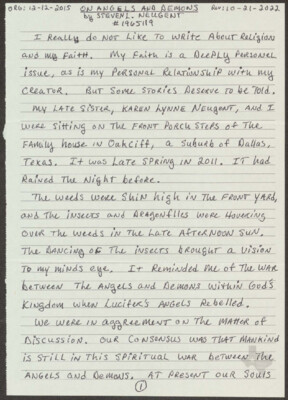 ORG: 12-12-2015 ON ANGELS AND DEMONS REV: 10-21-2022
by STEVEN L. NEUGENT
# 1965119
I Really do Not Like To Write About Religion
and my Faith. My Faith is a Deeply Personal
issue, as is my Personal Relationship with my
Creator. But Some Stories Deserve to be Told.
My Late Sister, Karen Lynne Neugent, and I
were sitting on the Front Porch Steps of the
Family house in Oakciff, a Suburb of Dallas,
Texas. It was Late Spring in 2011. IT had
Rained The Night before.
The weeds were Shin high in the Front yard,
and the insects and Dragonflies were Hovering
over the weeds in the Late afternoon Sun.
The Dancing of The insects brought a vision
to my minds eye. It Reminded me of The war
between The Angels and Demons within God's
Kingdom when Lucifer's Angels Rebelled.
We were in aggreement on The matter of
Discussion. Our Consensus was That mankind
is still in This Spiritual war between The
Angels and Demons. At Present our Souls
1